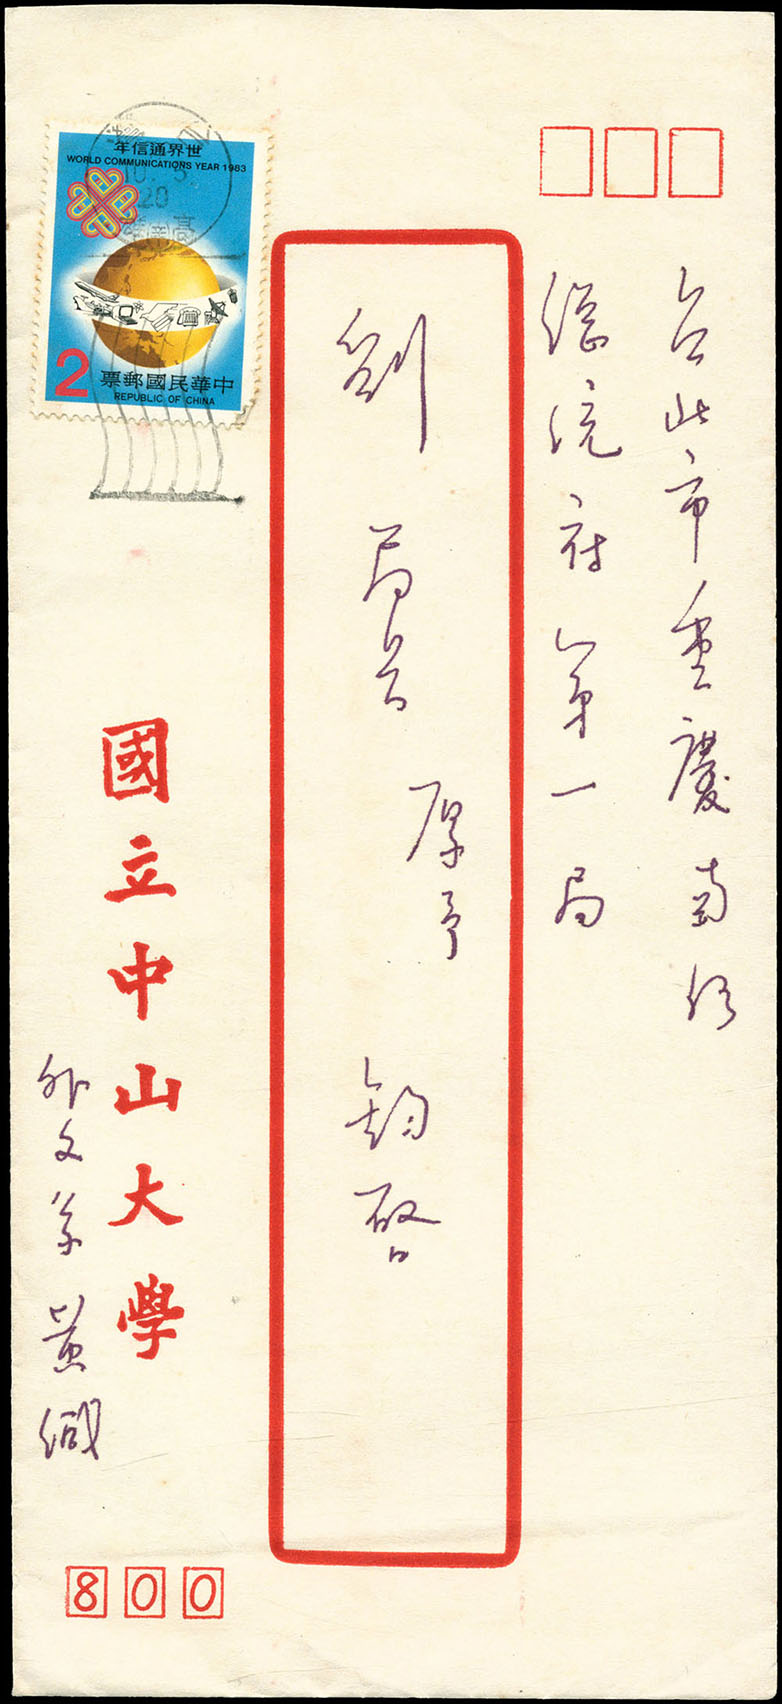 台北市重慶南路
總統府第一局
劉局長厚予鈞啓
國立中山大學
外文系黃緘
800
世界通信年
WORLD COMMUNICATIONS YEAR 1983
2
中華民國郵票
REPUBLIC OF CHINA
20